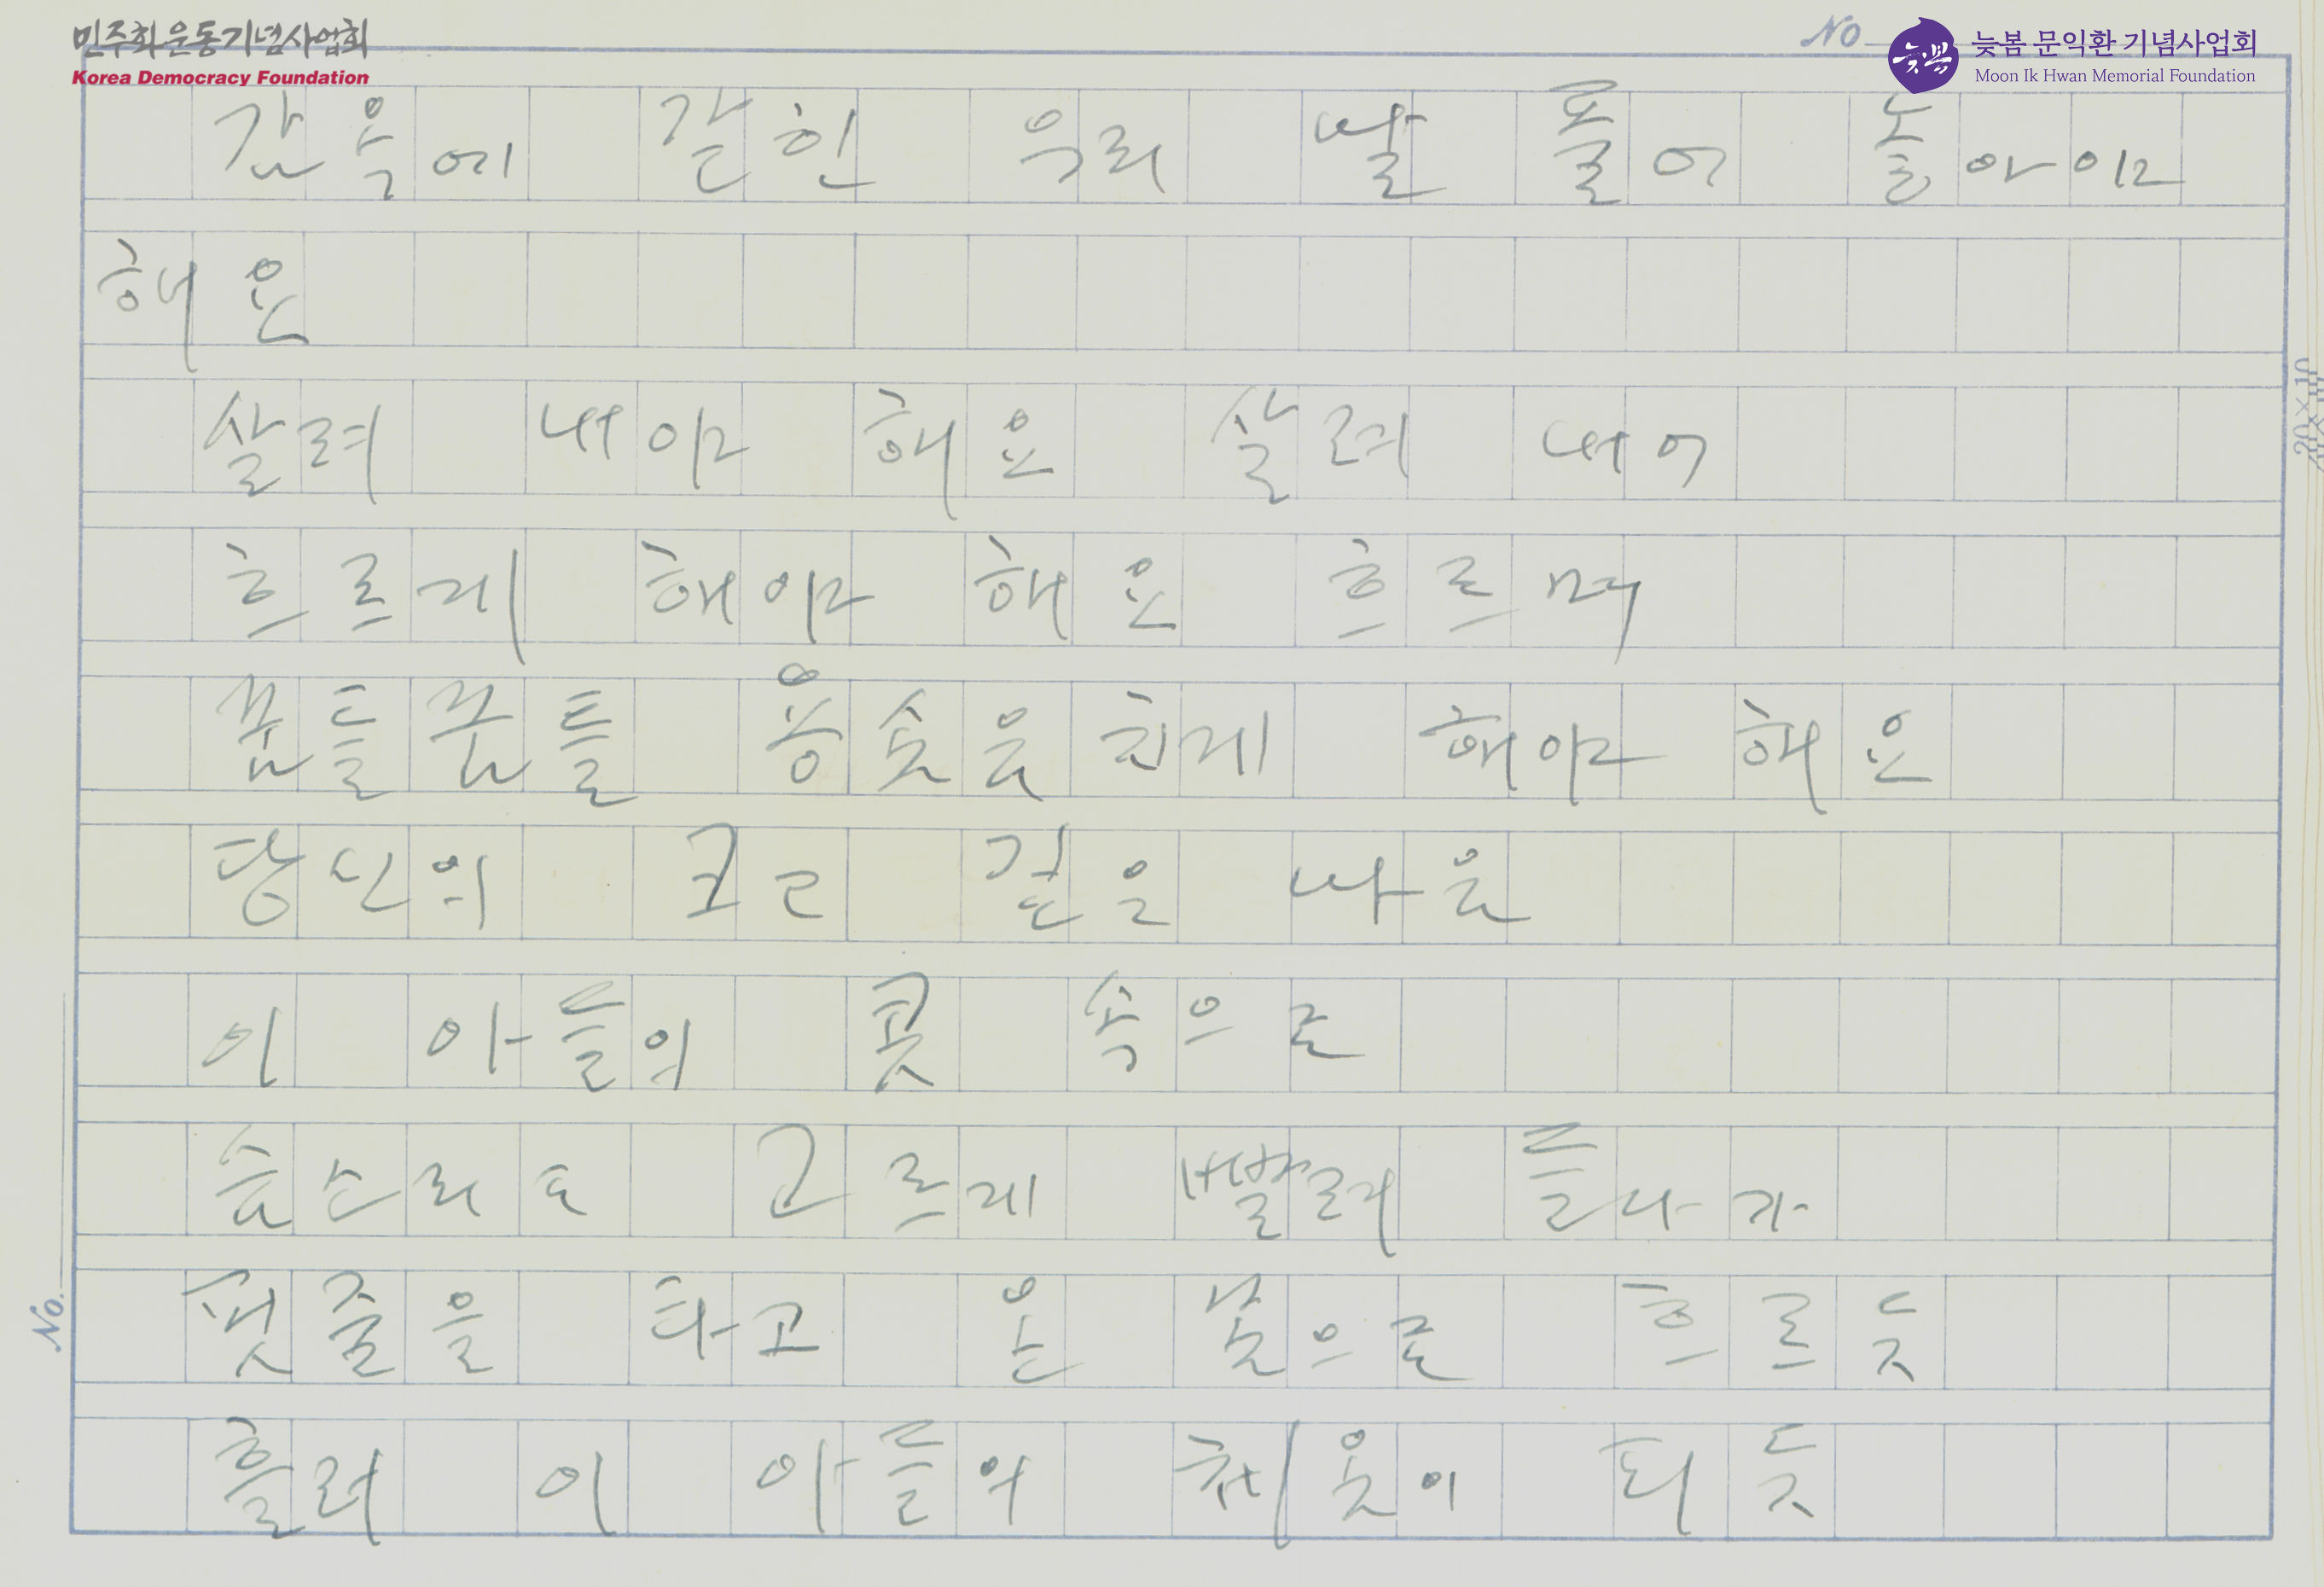 민주화운동기념사업회
Korea Democracy Foundation
No
늦봄 문익환 기념사업회
Moon Ik Hwan Memorial Foundation
감옥에 갇힌 우리 말 풀어 놓아야
해요
살려 내야 해요 살려 내어
흐르게 해야 해요 흐르며
꿈틀꿈틀 용솟음치게 해야 해요
당신의 크고 깊은 마음
이 아들의 콧 속으로
숨소리도 고르게 빨려 들다가
핏줄을 타고 온 몸으로 흐르듯
흘러 이 아들의 체온이 되듯
20×10
No.